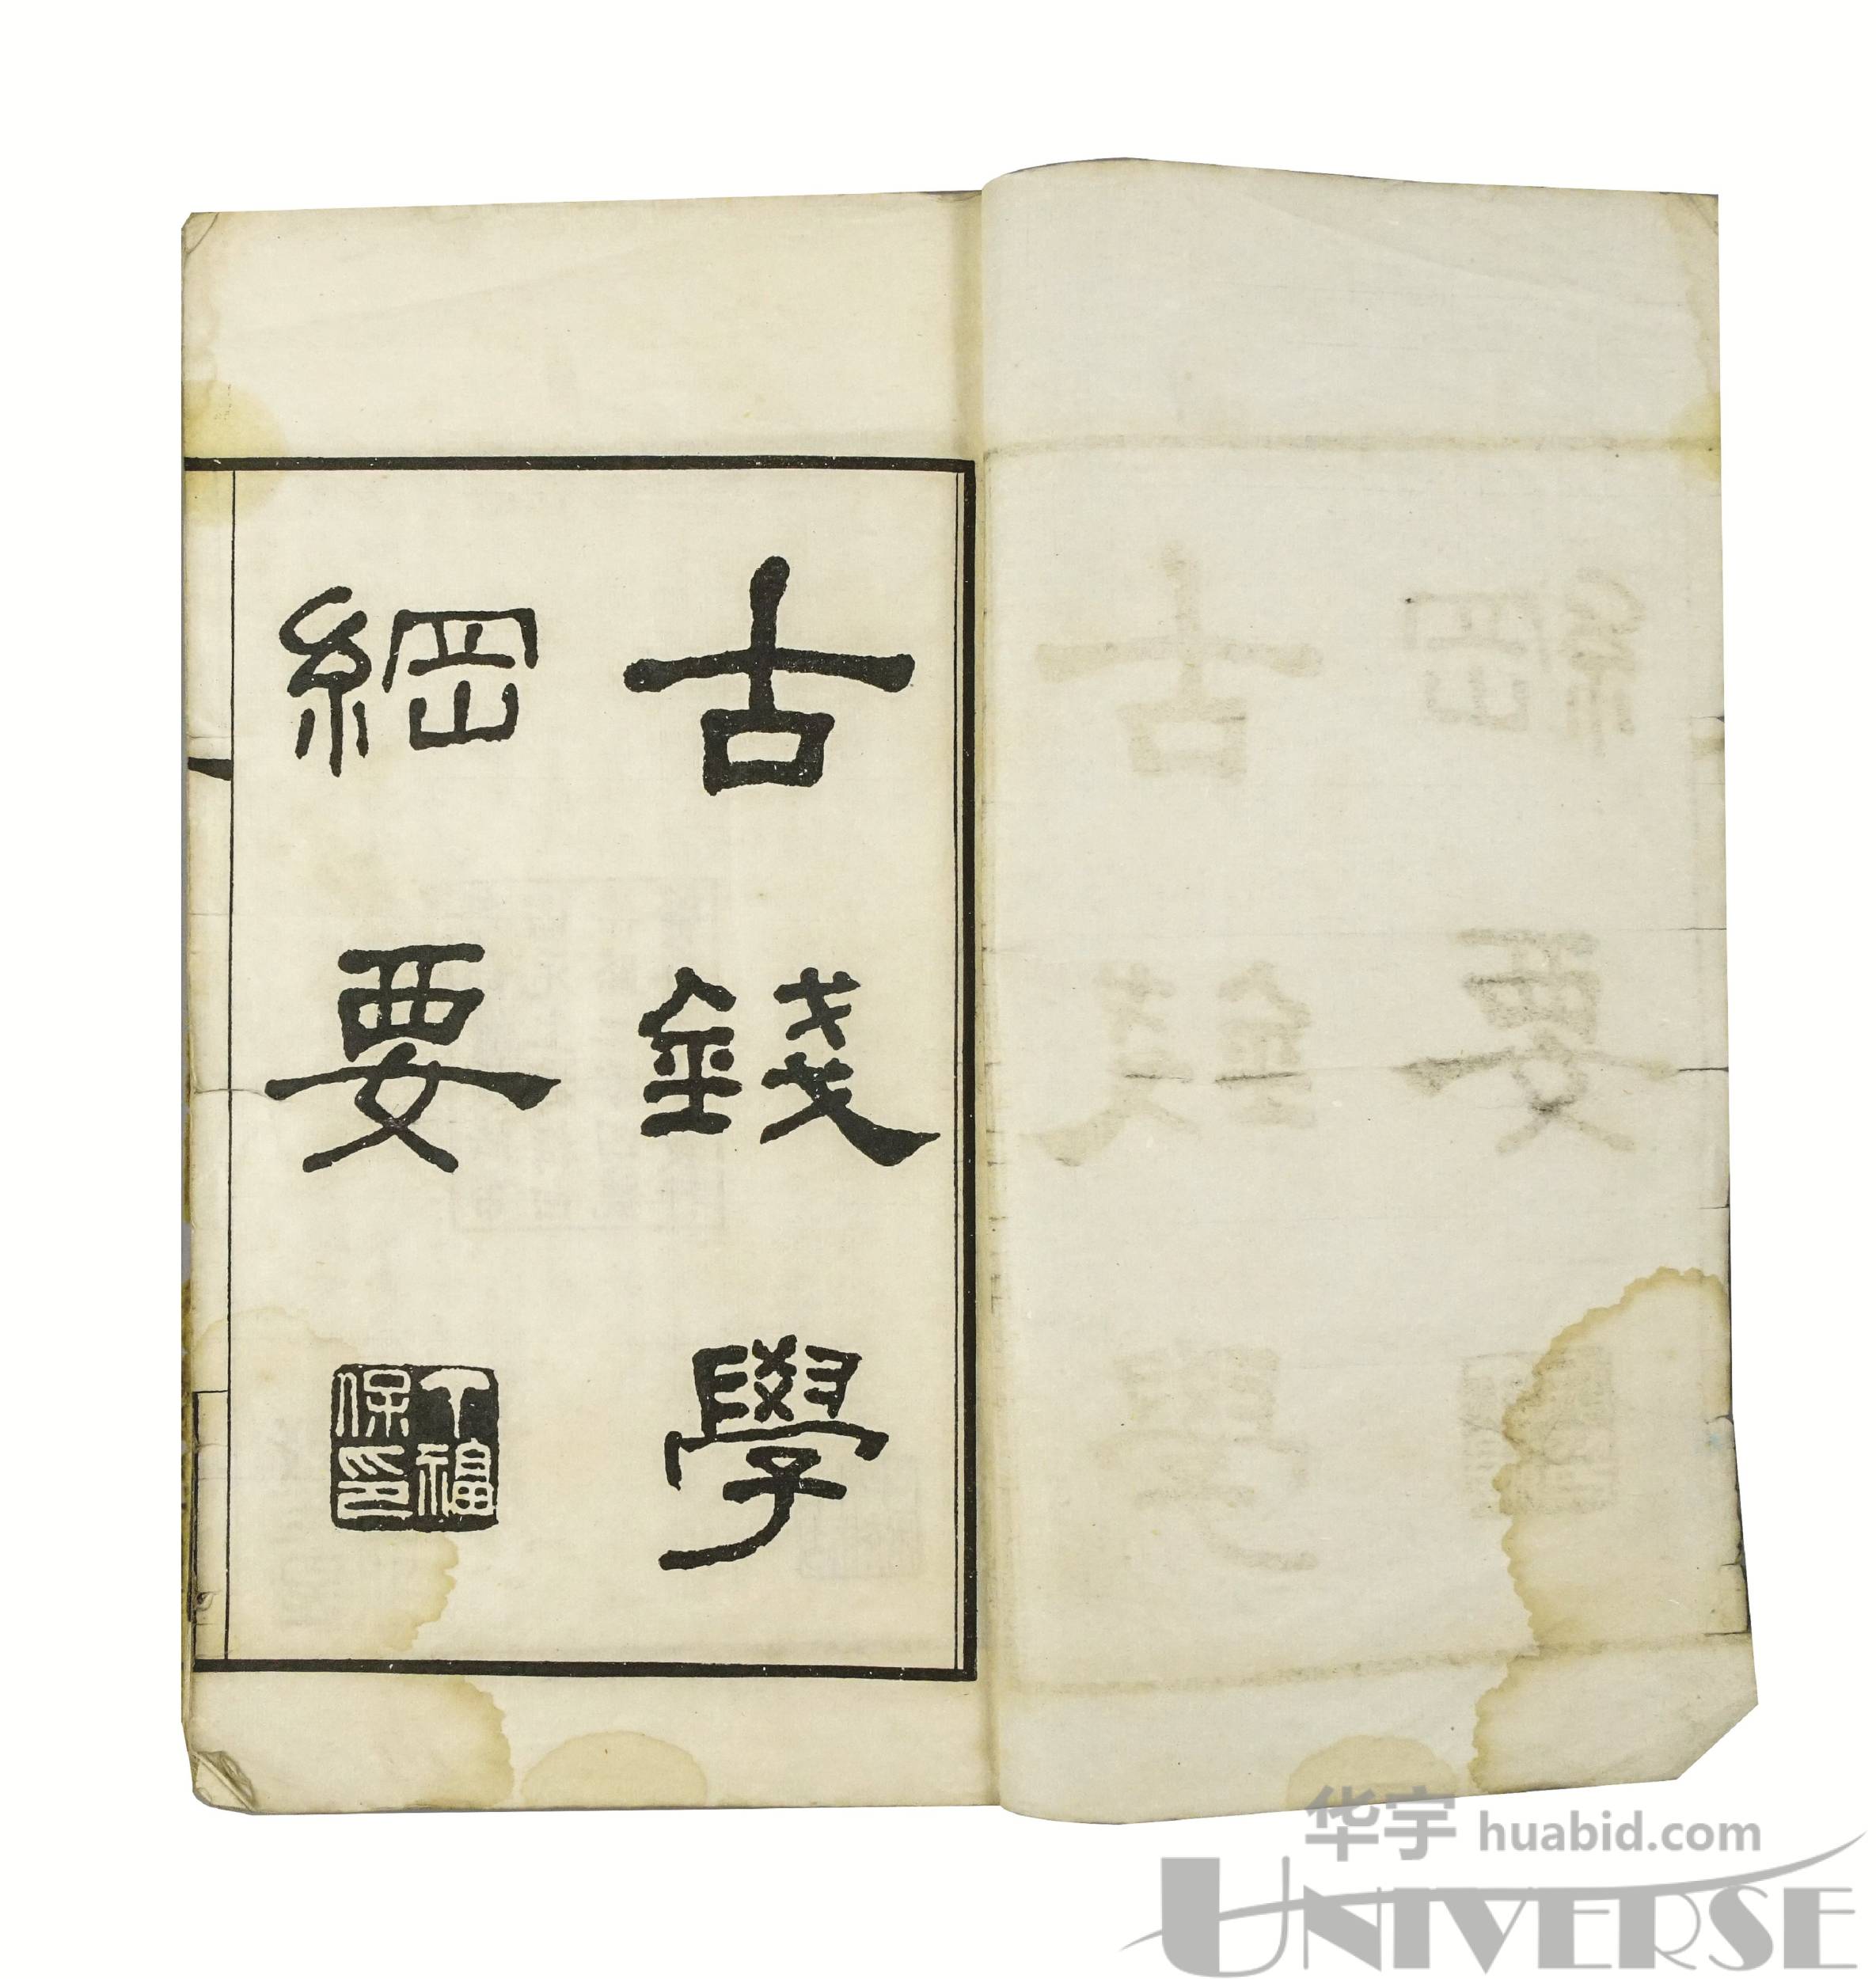 古錢學
綱要
丁福保印
华宇 huabid.com
UNIVERSE